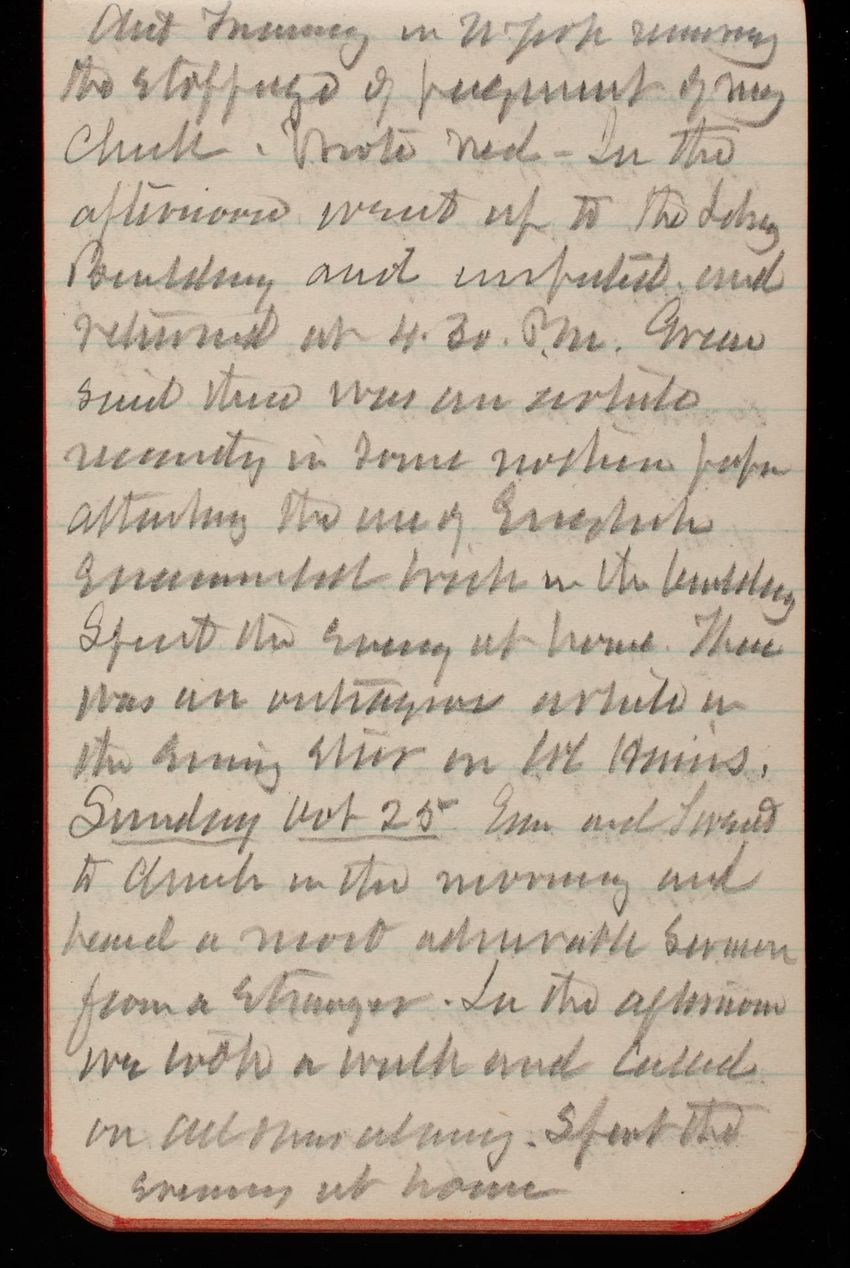 Asst Treasury in N York removing
the stoppage of payment of my
Check. Wrote Ned - In the
afternoon went up to the Libry
Building and inspected and
returned at 4.30. P.M. Green
said there was an article
recently in some northern paper
attacking the use of English
Enamelled brick in the building
Spent the evening at home. There
was an outrageous article in
the Evening Star on
Sunday Oct 25 Em and I went
to church in the morning and
heard a most admirable sermon
from a stranger. In the afternoon
we took a walk and called
on Spent the
evening at home